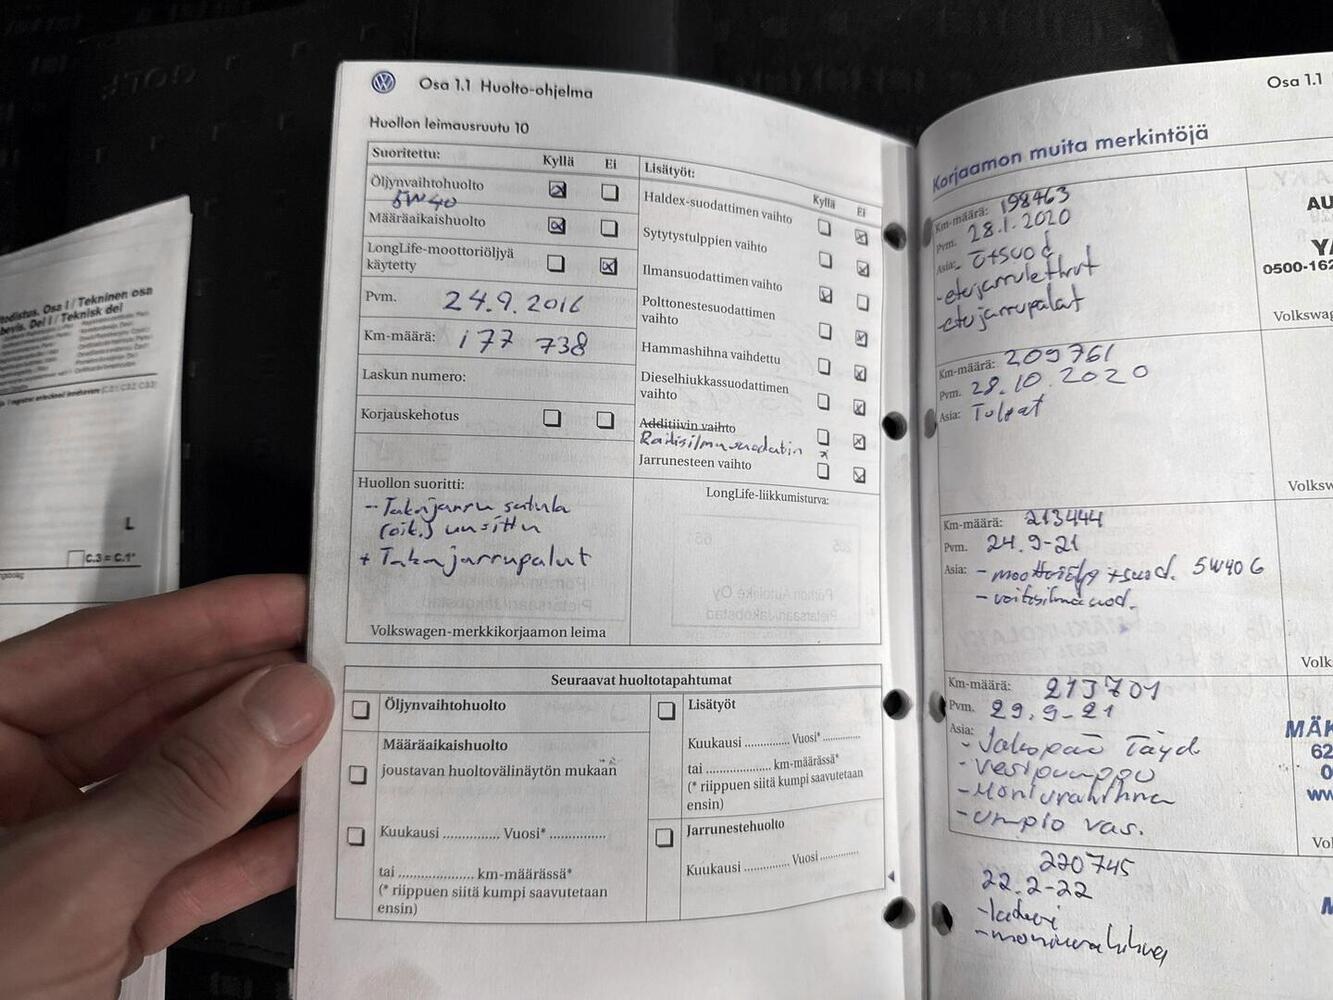 GOLF
todistus. Osa I / Tekninen osa
bevis. Del I / Teknisk del
L
C.3 = C.1*
Osa 1.1 Huolto-ohjelma
Huollon leimausruutu 10
Suoritettu: Kyllä Ei
Öljynvaihtohuolto
5W40
Määräaikaishuolto
LongLife-moottoriöljyä
käytetty
Pvm. 24.9.2016
Km-määrä: 177 738
Laskun numero:
Korjauskehotus
Huollon suoritti:
- Takajarru satula
(oik.) uusittu
+ Takajarrupalat
Volkswagen-merkkikorjaamon leima
Lisätyöt: Kyllä Ei
Haldex-suodattimen vaihto
Sytytystulppien vaihto
Ilmansuodattimen vaihto
Polttonestesuodattimen
vaihto
Hammashihna vaihdettu
Dieselhiukkassuodattimen
vaihto
Additiivin vaihto
Raitisilmasuodatin
Jarrunesteen vaihto
LongLife-liikkumisturva:
Seuraavat huoltotapahtumat
Öljynvaihtohuolto
Määräaikaishuolto
joustavan huoltovälinäytön mukaan
Kuukausi .............. Vuosi* ..............
tai ................... km-määrässä*
(* riippuen siitä kumpi saavutetaan
ensin)
Lisätyöt
Kuukausi ............. Vuosi* ............
tai ................... km-määrässä*
(* riippuen siitä kumpi saavutetaan
ensin)
Jarrunestehuolto
Kuukausi ............. Vuosi ............
Osa 1.1
Korjaamon muita merkintöjä
Km-määrä: 198463
Pvm. 28.1.2020
Asia:
- etujarrulethrut
- etujarrupalat
AU
0500-162
Volkswag
Km-määrä: 209761
Pvm. 28.10.2020
Asia:
Volksw
Km-määrä: 213444
Pvm. 24.9-21
Asia: - moottoriöljy + suod. 5W40 G
- raitisilmasuod.
Volk
Km-määrä: 213701
Pvm. 29.9-21
Asia:
- Jakopää täyd
- Vesipumppu
- Moniurahihna
MÄK
62
0
ww
Vo
220745
22.2-22
- laturi
- moniurahihna